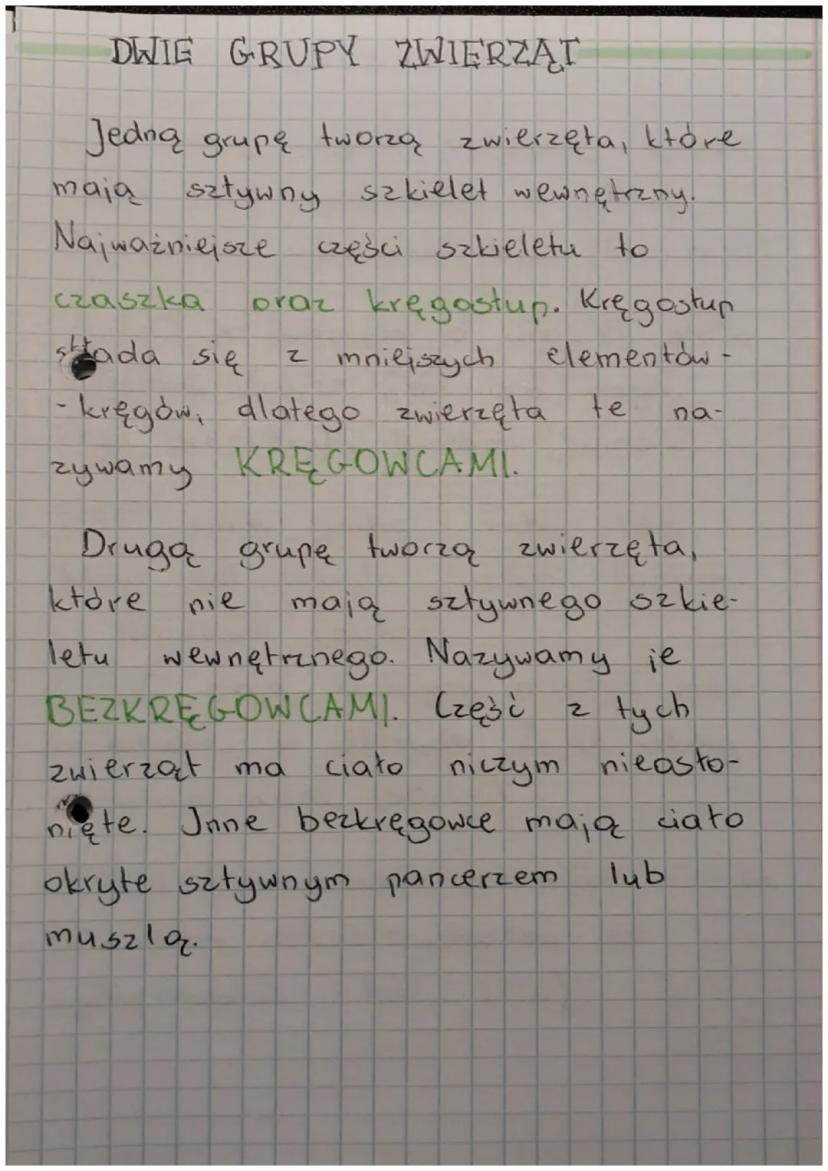 DWIE GRUPY ZWIERZĄT
Jedną grupę tworzą zwierzęta, które
mają sztywny szkielet wewnętrzny.
Najważniejsze części szkieletu to
czaszka oraz kręgosłup. Kręgosłup
składa się z mniejszych elementów-
-kręgów, dlatego zwierzęta te na-
zywamy KRĘGOWCAMI.
Drugą grupę tworzą zwierzęta,
które nie mają sztywnego szkie-
letu wewnętrznego. Nazywamy je
BEZKRĘGOWCAMI. Część z tych
zwierząt ma ciało niczym nieosło-
nięte. Inne bezkręgowce mają ciało
okryte sztywnym pancerzem lub
muszlą.